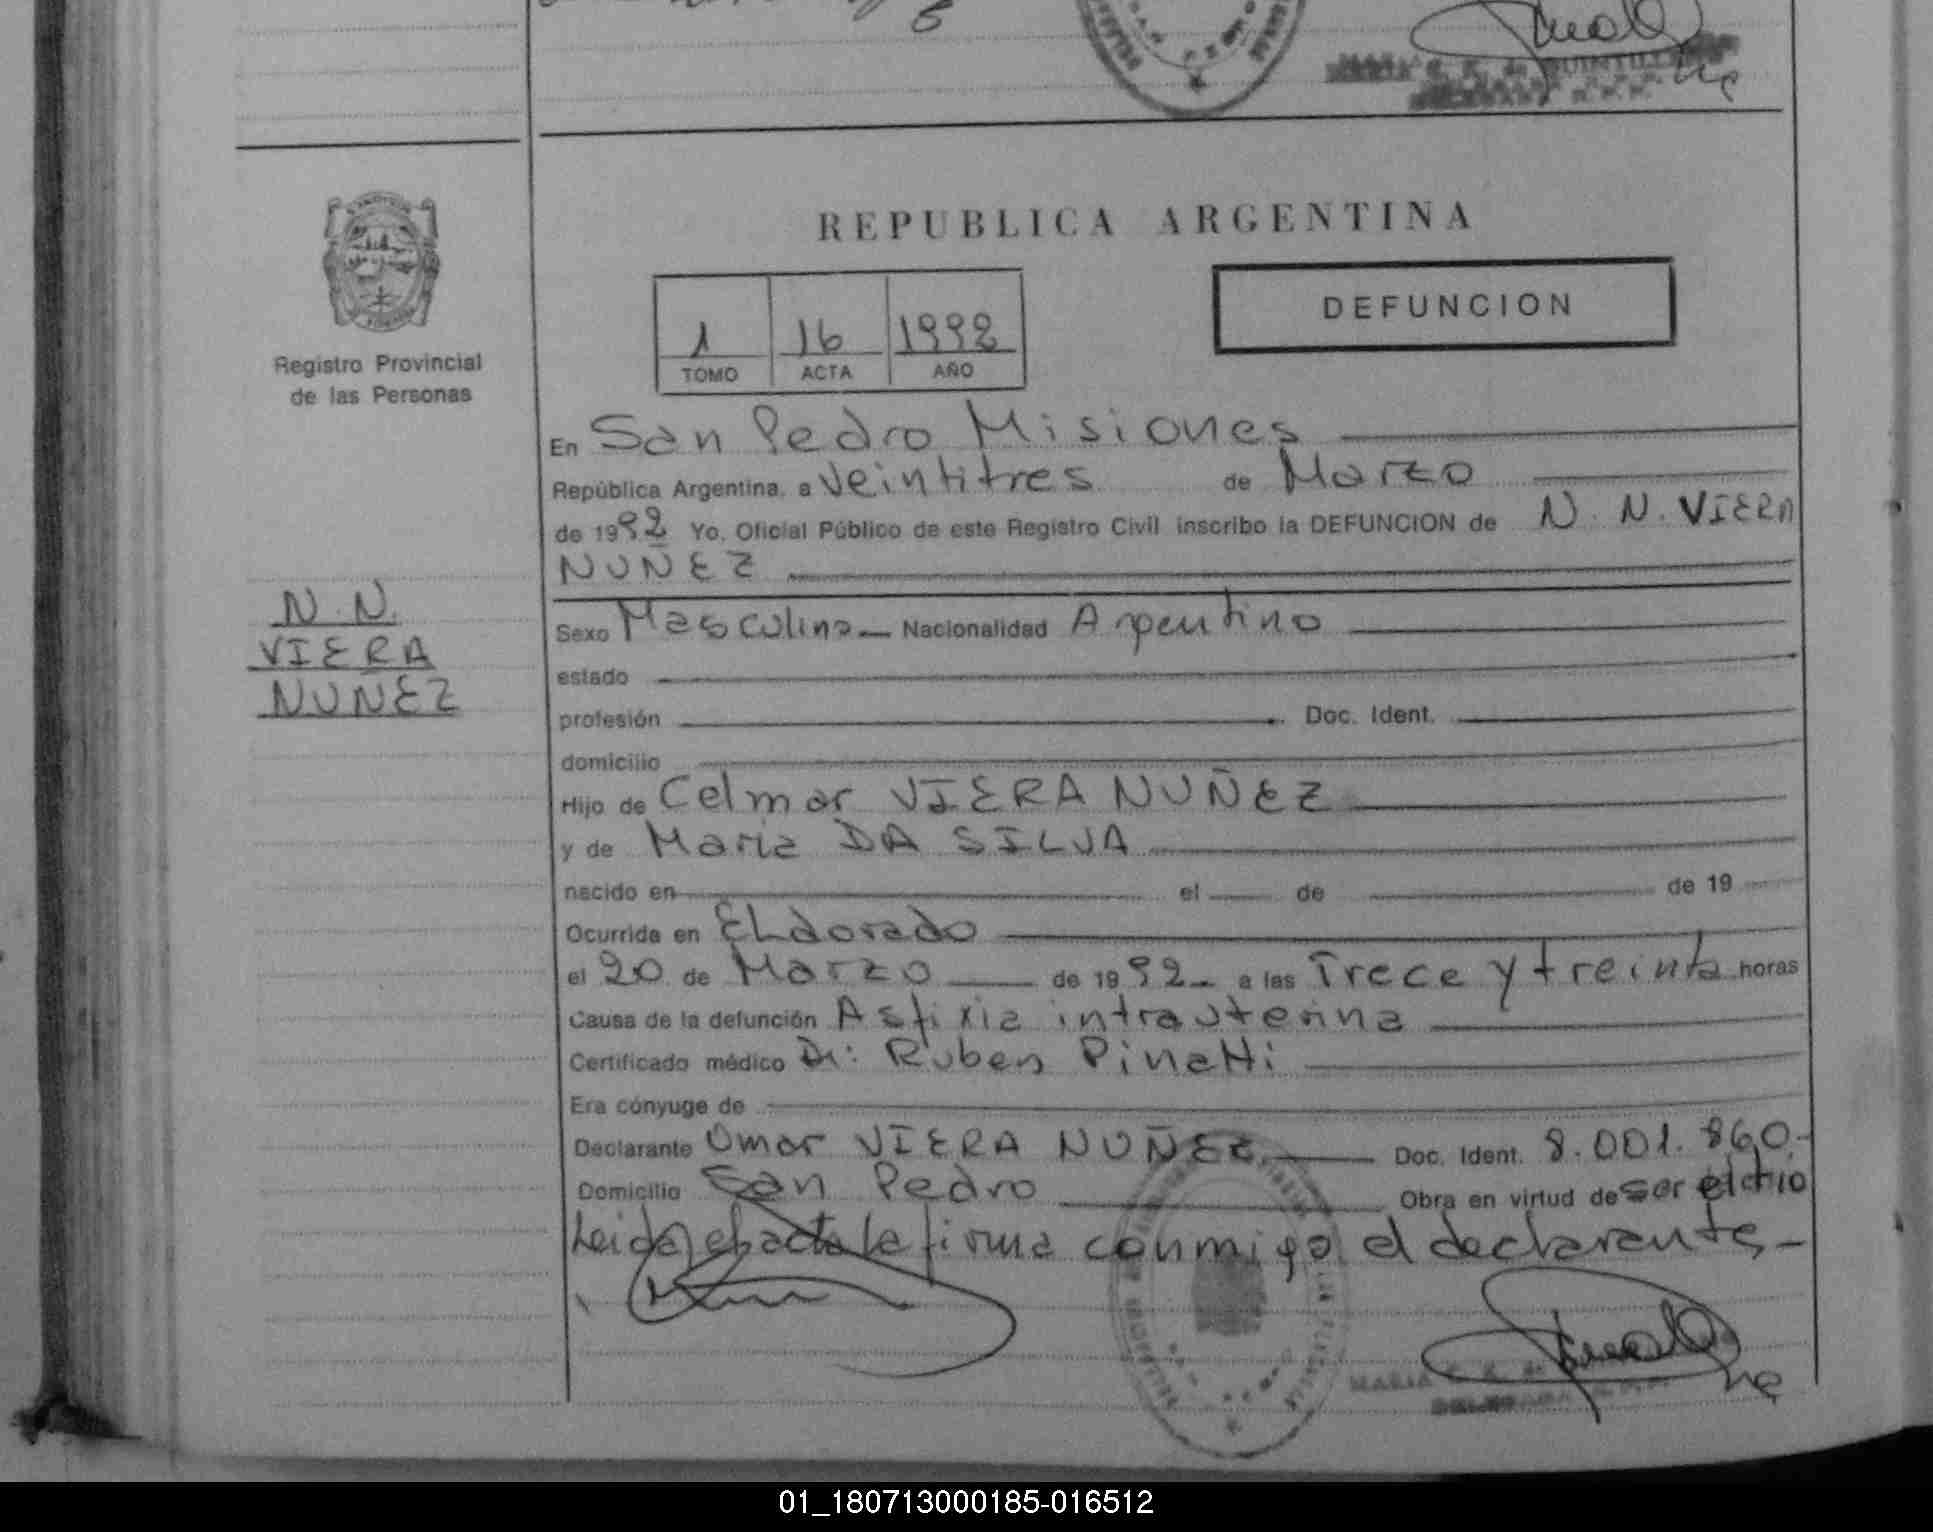 REPUBLICA ARGENTINA
Registro Provincial
de las Personas
1 16 1992
TOMO ACTA AÑO
DEFUNCION
En San Pedro Misiones
República Argentina, a Veintitres de Marzo
de 1992 Yo, Oficial Público de este Registro Civil inscribo la DEFUNCION de N. N. VIERA
NUÑEZ
N. N.
VIERA
NUÑEZ
Sexo Masculino Nacionalidad Argentino
estado
profesión Doc. Ident.
domicilio
Hijo de Celmar VIERA NUÑEZ
y de Maria DA SILVA
nacido en el de de 19
Ocurrida en ELdorado
el 20 de Marzo de 1992 a las Trece y treinta horas
Causa de la defunción Asfixia intrauterina
Certificado médico Dr: Ruben Pinatti
Era cónyuge de
Declarante Omar VIERA NUÑEZ Doc. Ident. 8.001.860.-
Domicilio San Pedro Obra en virtud de ser el tio
Leida el acta la firma conmigo el declarante
MARIA
01_180713000185-016512